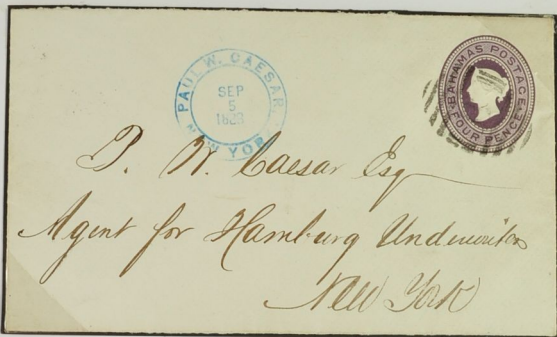 PAUL W. CAESAR
SEP
5
NEW YORK
BAHAMAS POSTAGE
FOUR PENCE
P. W. Caesar Esq
Agent for Hamburg Underwriters
New York